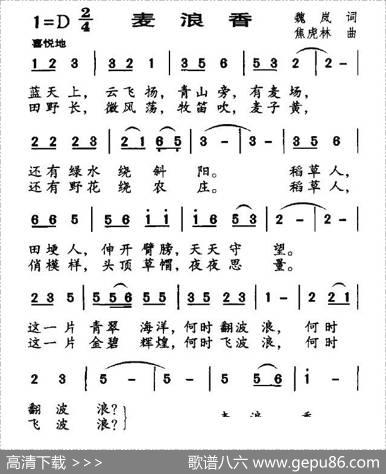 1=D 2/4 麦浪香 魏岚 词
喜悦地 焦虎林 曲
1 2 3 | 3 2 1 | 3 5 6 | 5 2 | 2 - |
蓝天上，云飞扬，青山旁，有麦场，
田野长，微风荡，牧笛吹，麦子黄，
2 2 2 3 | 2 1 6 5 | 3 - | 3 - | 3 5 6 |
还有绿水绕斜阳。稻草人，
还有野花绕农庄。稻草人，
6 6 5 | 5 6 i i | i 6 5 3 | 2 - | 2 - |
田埂人，伸开臂膀，天天守望。
俏模样，头顶草帽，夜夜思量。
2 3 5 | 5 5 5 6 | 2 3 5 | 2 3 | 1 - | 2 2 1 |
这一片青翠海洋，何时翻波浪，何时
这一片金碧辉煌，何时飞波浪，何时
2 3 | 5 - | 5 - | 5 2 | 5 5 6 | i - |
翻波浪？
飞波浪？
高清下载 >>> 歌谱八六 www.gepu86.com